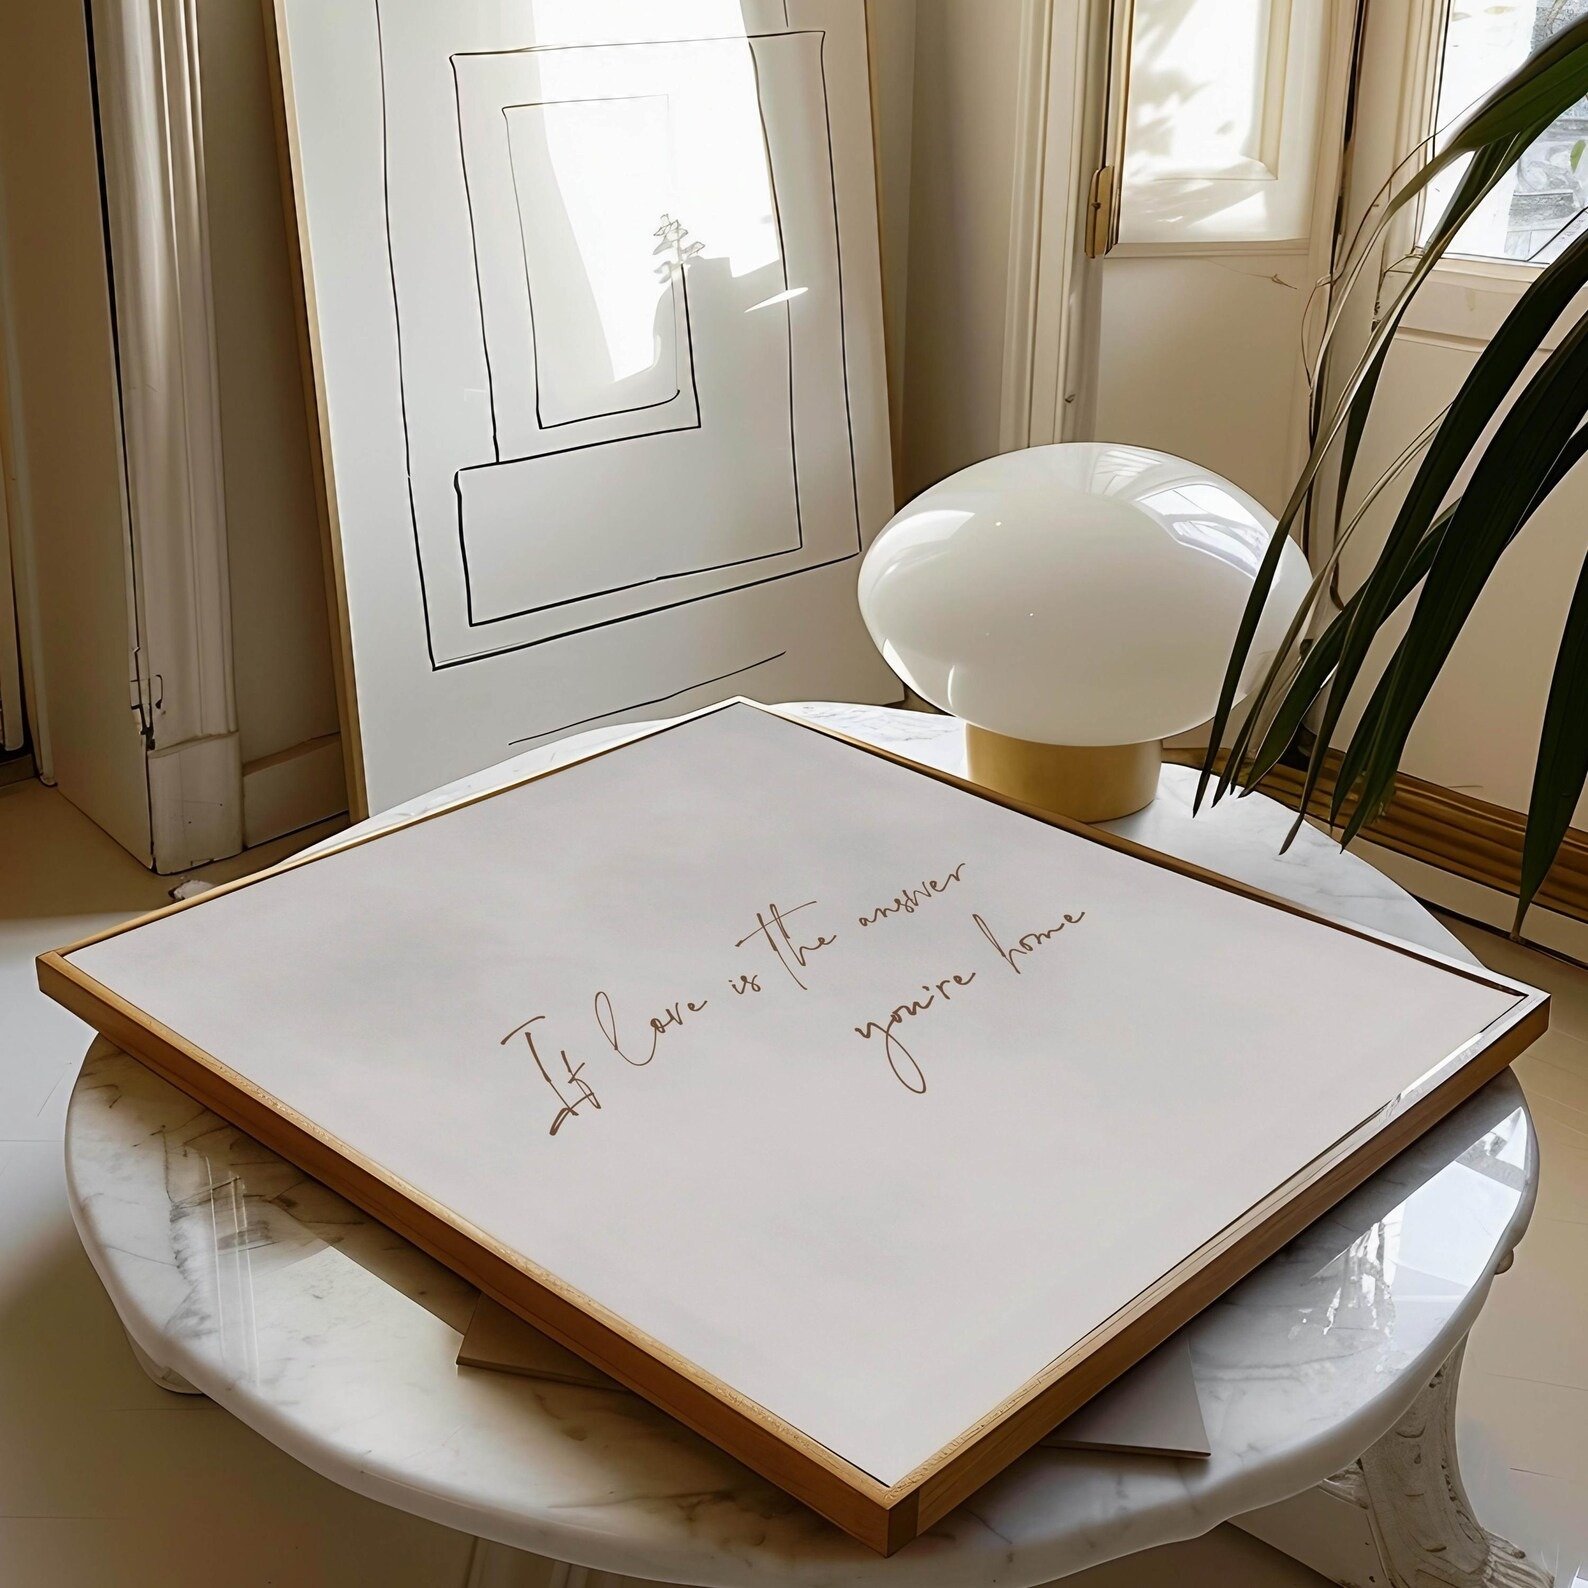 If love is the answer
you're home